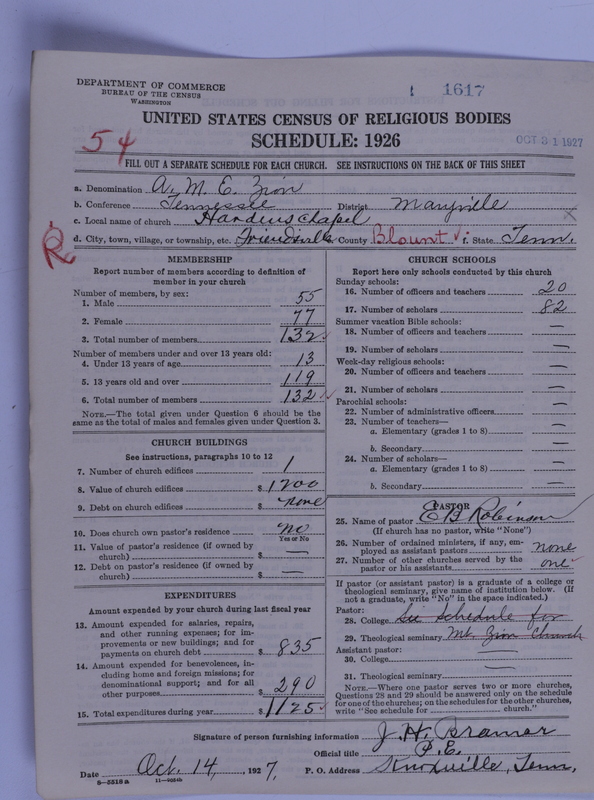 DEPARTMENT OF COMMERCE
BUREAU OF THE CENSUS
WASHINGTON
1617
UNITED STATES CENSUS OF RELIGIOUS BODIES
SCHEDULE: 1926
54
OCT 31 1927
FILL OUT A SEPARATE SCHEDULE FOR EACH CHURCH. SEE INSTRUCTIONS ON THE BACK OF THIS SHEET
a. Denomination A. M. E. Zion
b. Conference Tennessee District Maryville
c. Local name of church Hardens Chapel
R
d. City, town, village, or township, etc. Friendsville County Blount f. State Tenn.
MEMBERSHIP
Report number of members according to definition of
member in your church
Number of members, by sex:
1. Male 55
2. Female 77
3. Total number of members 132
Number of members under and over 13 years old:
4. Under 13 years of age 13
5. 13 years old and over 119
6. Total number of members 132
NOTE.—The total given under Question 6 should be
the same as the total of males and females given under Question 3.
CHURCH BUILDINGS
See instructions, paragraphs 10 to 12
7. Number of church edifices 1
8. Value of church edifices $ 1200
9. Debt on church edifices $ none
10. Does church own pastor's residence no
Yes or No
11. Value of pastor's residence (if owned by
church) $ —
12. Debt on pastor's residence (if owned by
church) $ —
EXPENDITURES
Amount expended by your church during last fiscal year
13. Amount expended for salaries, repairs,
and other running expenses; for im-
provements or new buildings; and for
payments on church debt $ 835
14. Amount expended for benevolences, in-
cluding home and foreign missions; for
denominational support; and for all
other purposes $ 290
15. Total expenditures during year $ 1125
CHURCH SCHOOLS
Report here only schools conducted by this church
Sunday schools:
16. Number of officers and teachers 20
17. Number of scholars 82
Summer vacation Bible schools:
18. Number of officers and teachers —
19. Number of scholars —
Week-day religious schools:
20. Number of officers and teachers —
21. Number of scholars —
Parochial schools:
22. Number of administrative officers —
23. Number of teachers—
a. Elementary (grades 1 to 8) —
b. Secondary —
24. Number of scholars—
a. Elementary (grades 1 to 8) —
b. Secondary —
PASTOR
25. Name of pastor E B Robinson
(If church has no pastor, write "None")
26. Number of ordained ministers, if any, em-
ployed as assistant pastors none
27. Number of other churches served by the
pastor or his assistants one
If pastor (or assistant pastor) is a graduate of a college or
theological seminary, give name of institution below. (If
not a graduate, write "No" in the space indicated.)
Pastor:
28. College See schedule for
29. Theological seminary Mt. Zion Church
Assistant pastor:
30. College —
31. Theological seminary
NOTE.—Where one pastor serves two or more churches,
Questions 28 and 29 should be answered only on the schedule
for one of the churches; on the schedules for the other churches,
write "See schedule for church."
Signature of person furnishing information J. H. Bramer
Official title P. E.
Date Oct. 14, 1927, P. O. Address Knoxville, Tenn.
8—5518a 11—9264b